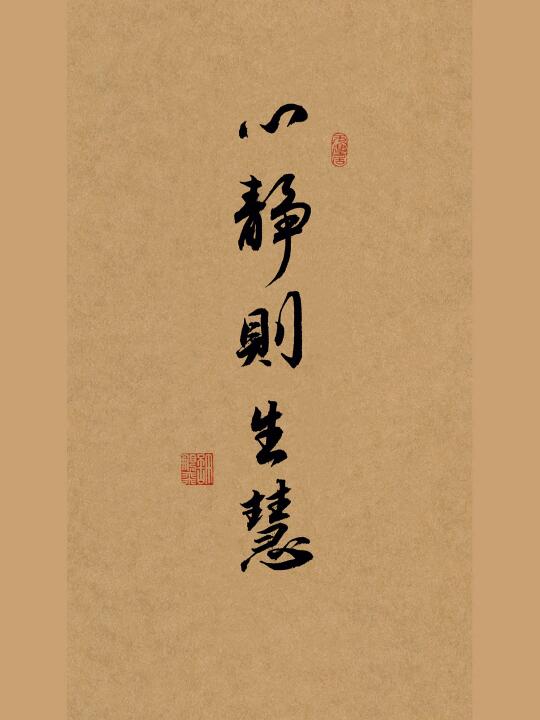 心静則生慧